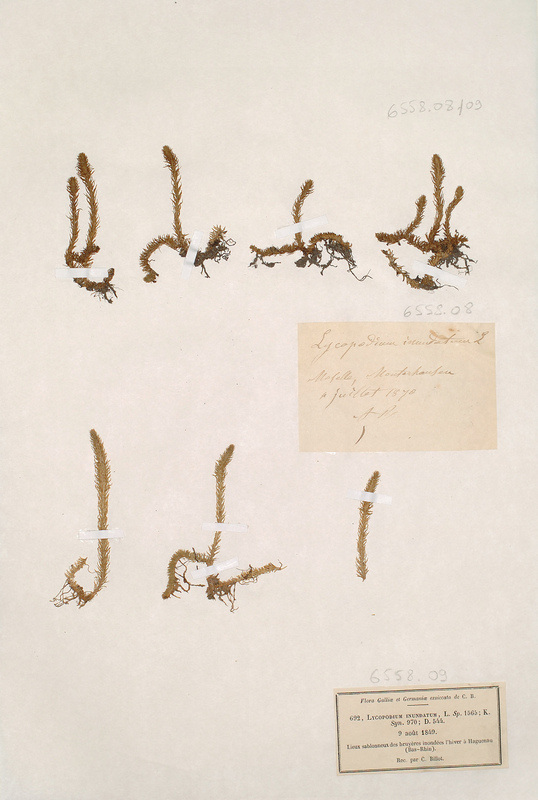 6558.08/09
6558.08
Lycopodium inundatum L
Moselle,
Juillet 1870
6558.09
Flora Galliæ et Germaniæ exsiccata de C. B.
692, LYCOPODIUM INUNDATUM, L. Sp. 1565; K.
Syn. 970; D. 544.
9 août 1849.
Lieux sablonneux des bruyères inondées l'hiver à Haguenau
(Bas-Rhin).
Rec. par C. Billot.